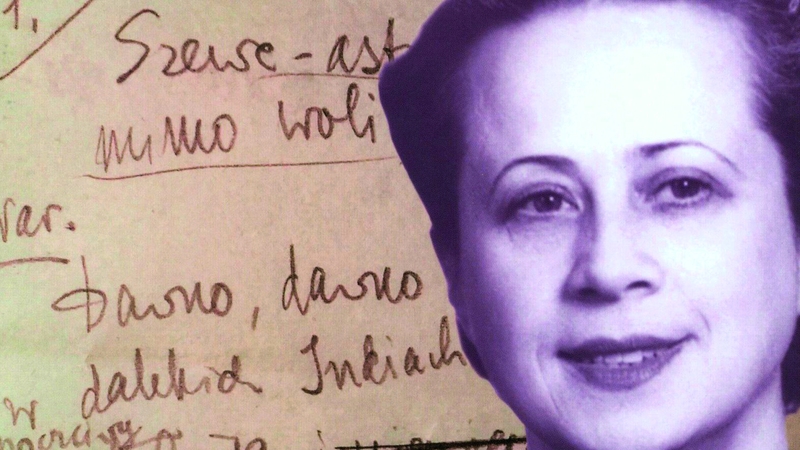 1.
Szewc-ast
mimo woli
Nar.
Dawno, dawno
w dalekich Indiach